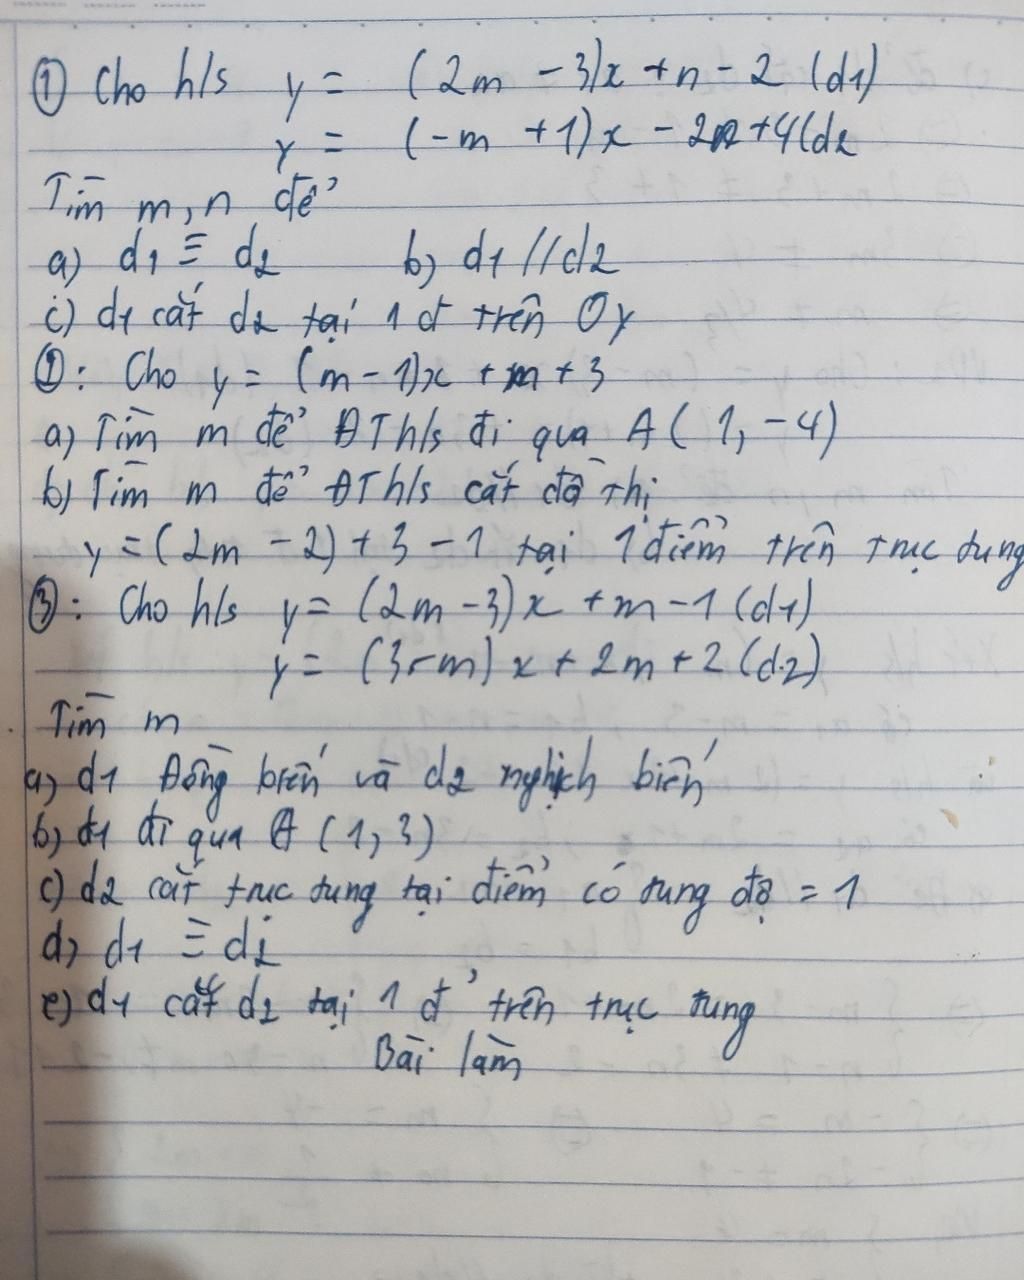 ① Cho h/s y = (2m - 3)x + n - 2 (d1)
y = (-m + 1)x - 2n + 4 (d2
Tìm m, n để
a) d1 ≡ d2 b) d1 // d2
c) d1 cắt d2 tại 1 đ trên Oy
②: Cho y = (m - 1)x + m + 3
a) Tìm m để ĐT h/s đi qua A (1, -4)
b) Tìm m để ĐT h/s cắt đồ thị
y = (2m - 2) + 3 - 1 tại 1 điểm trên trục tung
③: Cho h/s y = (2m - 3)x + m - 1 (d1)
y = (3 - m)x + 2m + 2 (d2)
Tìm m
a) d1 Đồng biến và d2 nghịch biến
b) d1 đi qua A (1, 3)
c) d2 cắt trục tung tại điểm có tung độ = 1
d) d1 ≡ d2
e) d1 cắt d2 tại 1 đ' trên trục tung
Bài làm